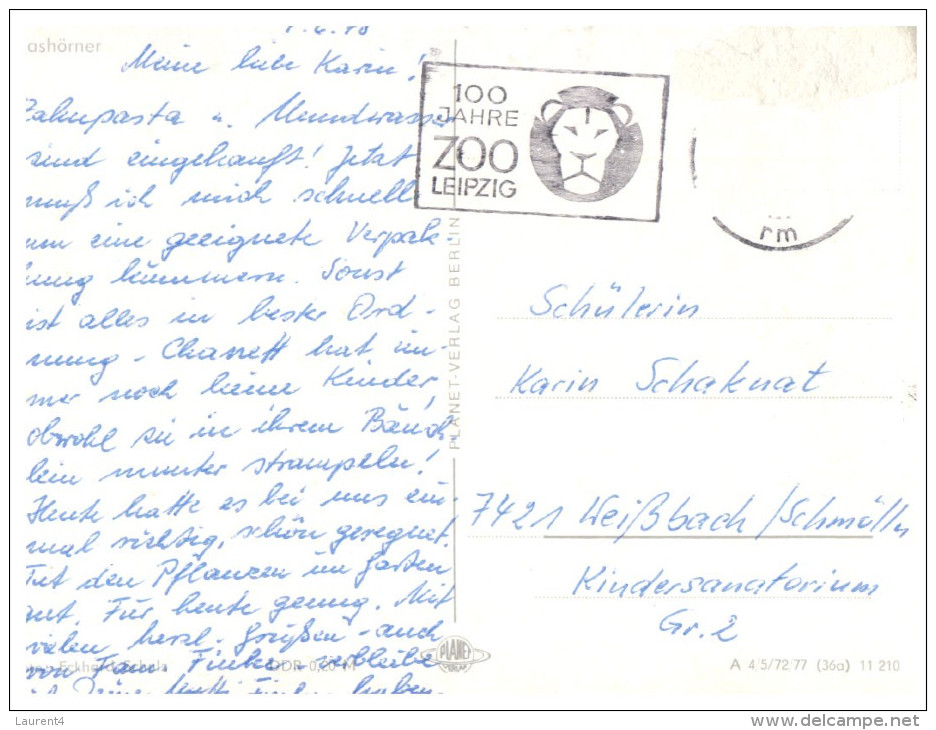 ashörner
1.6.78
Meine liebe Karin!
Zahnpasta u. Mundwasser
sind eingekauft! Jetzt
muß ich mich schnell
um eine geeignete Verpak-
kung kümmern. Sonst
ist alles in bester Ord-
nung - hat im-
mer noch keine Kinder,
obwohl sie in ihrem Bäuch
lein munter strampeln!
Heute hatte es bei uns ein-
mal richtig, schön geregnet.
Tut den Pflanzen im Garten
gut. Für heute genug. Mit
vielen herzl. Grüßen - auch
von Fam. Finke verbleibe
ich Deine Mutti
Eckhard Schulz
DDR 0,20 M
100
JAHRE
ZOO
LEIPZIG
PLANET-VERLAG BERLIN
rm
Schülerin
Karin Schaknat
7421 Weißbach/Schmölln
Kindersanatorium
Gr. 2
PLANET
VERLAG
A 4/5/72 77 (36a) 11 210
Laurent4
www.delcampe.net